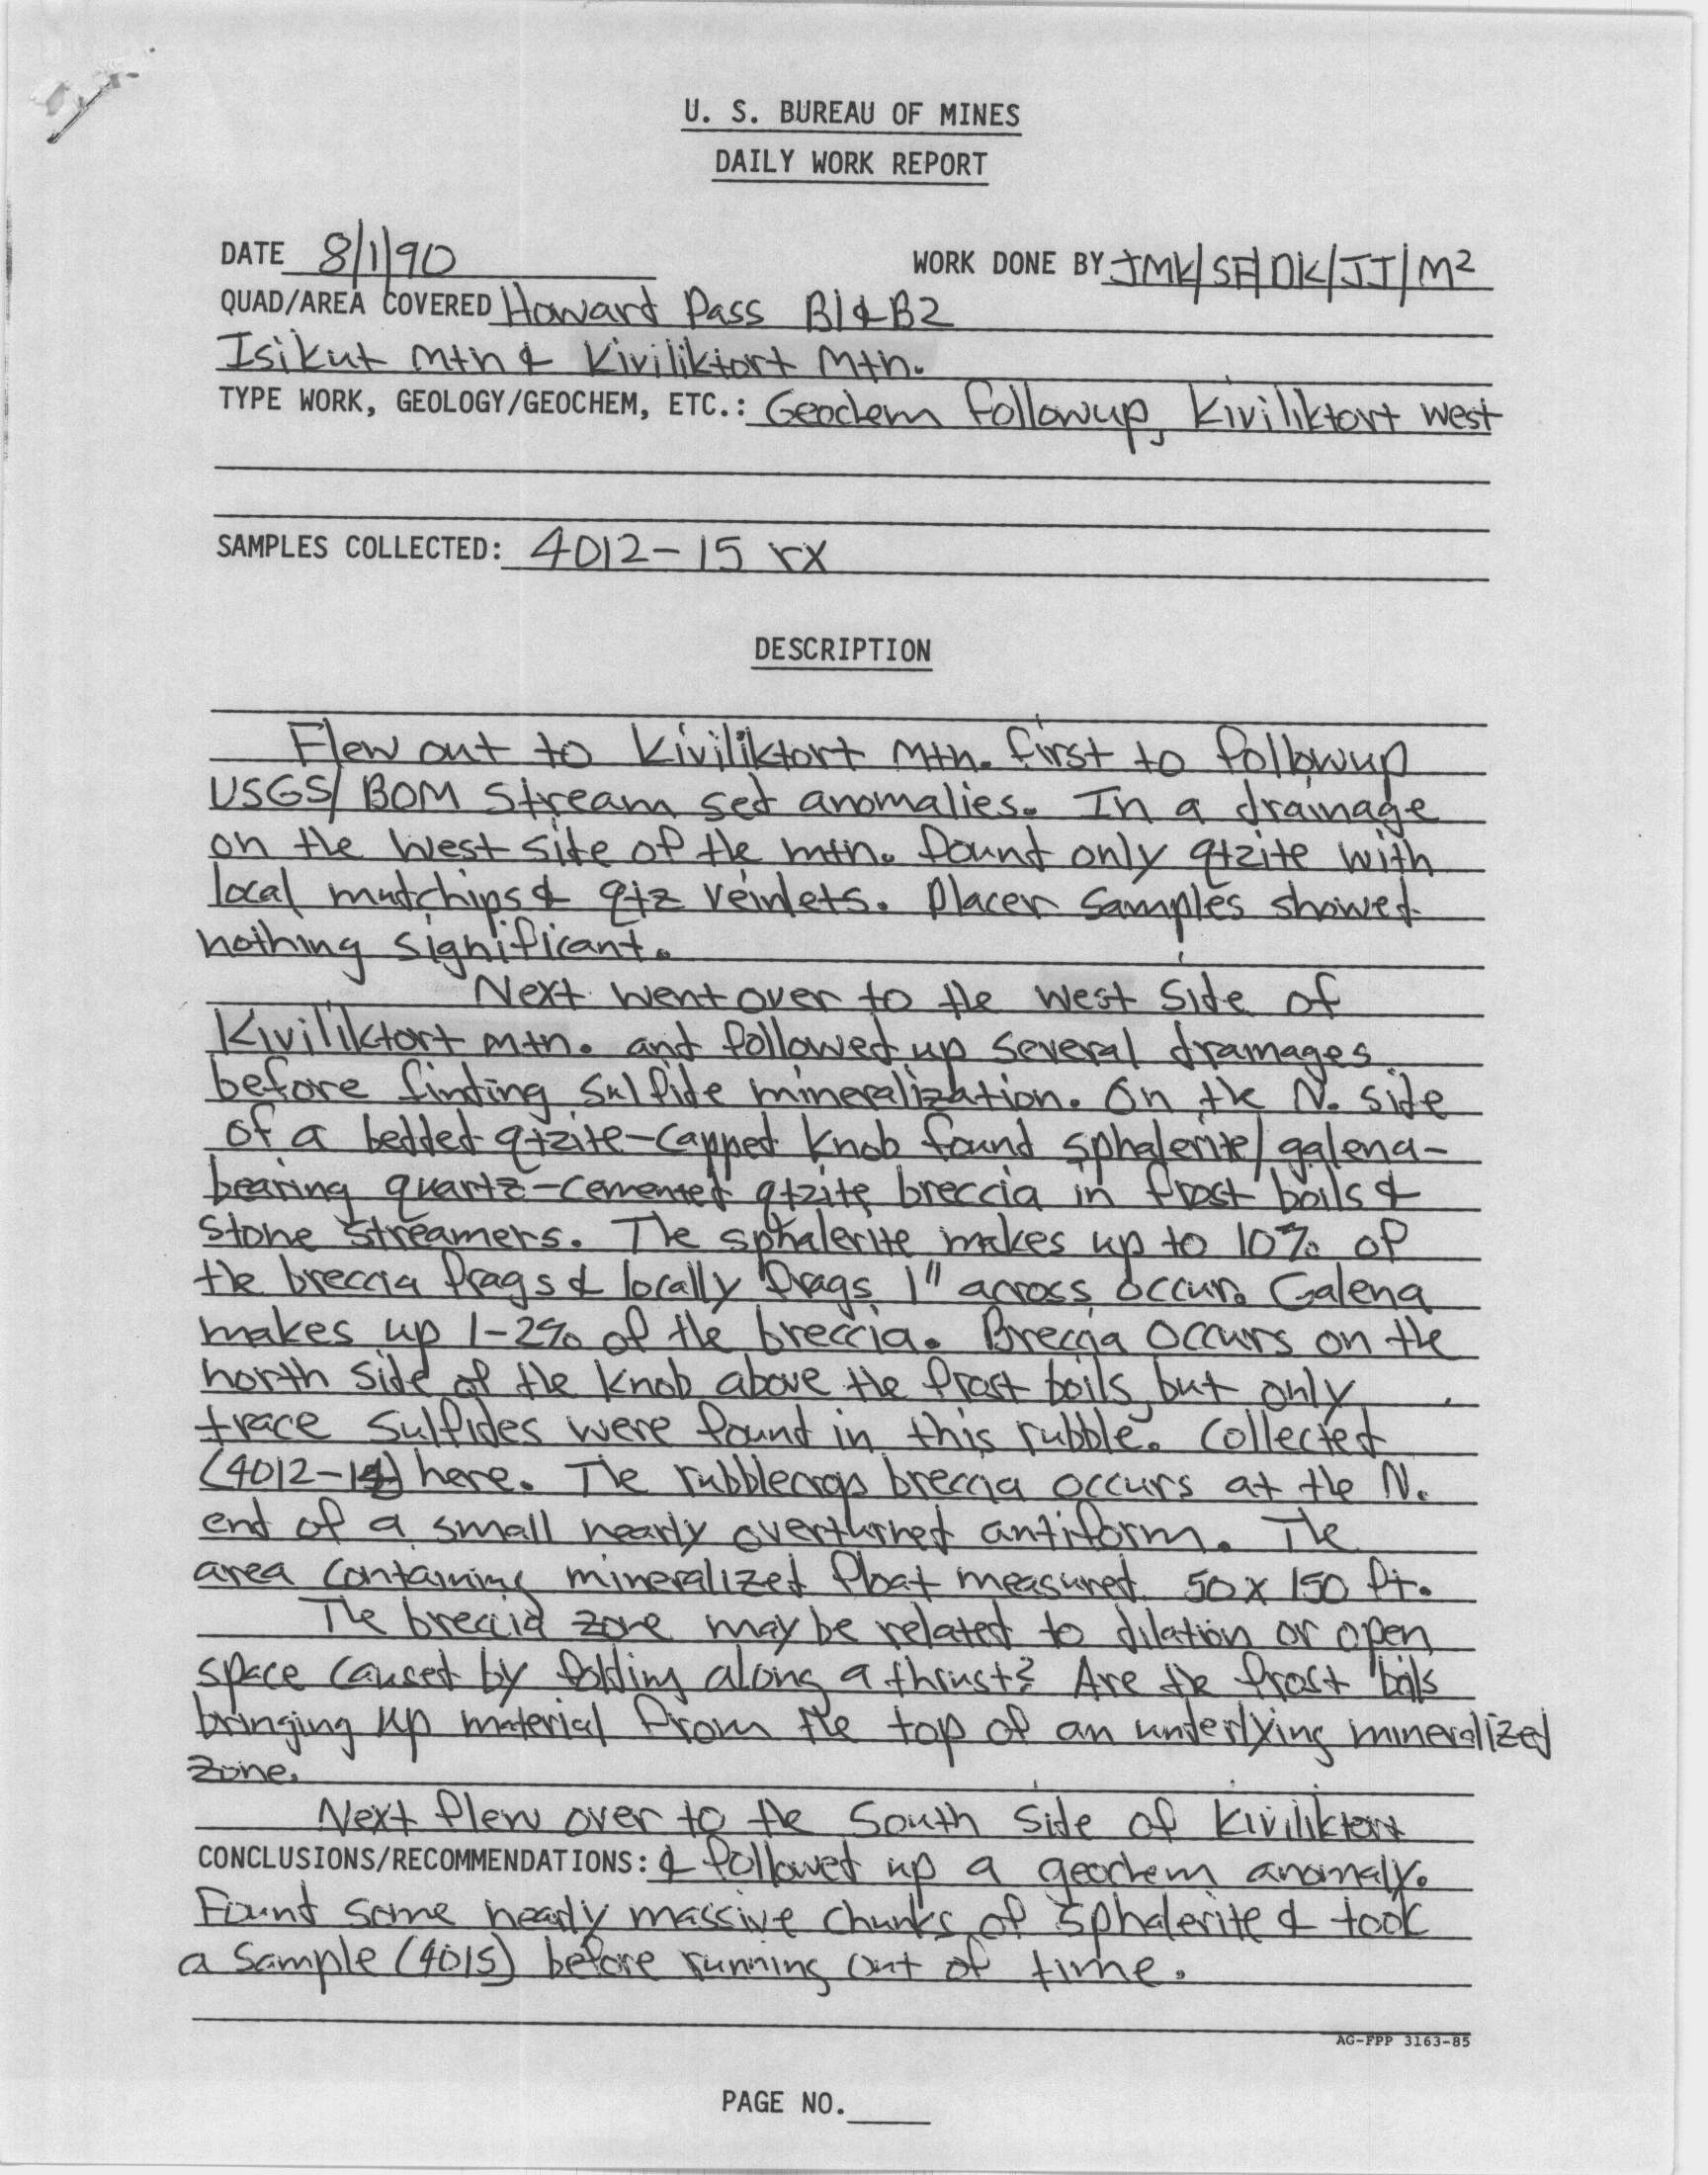 U. S. BUREAU OF MINES
DAILY WORK REPORT
DATE 8/1/90 WORK DONE BY JMK/SF/DK/JJ/M²
QUAD/AREA COVERED Howard Pass B1&B2
Isikut Mtn & Kiviliktort Mtn.
TYPE WORK, GEOLOGY/GEOCHEM, ETC.: Geochem followup, Kiviliktort West
SAMPLES COLLECTED: 4012-15 rx
DESCRIPTION
Flew out to Kiviliktort Mtn. first to followup
USGS/BOM Stream sed anomalies. In a drainage
on the west side of the mtn. found only qtzite with
local mudchips & qtz veinlets. Placer samples showed
nothing significant.
Next went over to the west side of
Kiviliktort mtn. and followed up several drainages
before finding sulfide mineralization. On the N. side
of a bedded qtzite-capped knob found sphalerite/galena-
bearing quartz-cemented qtzite breccia in frost boils &
stone streamers. The sphalerite makes up to 10% of
the breccia frags & locally frags 1" across occur. Galena
makes up 1-2% of the breccia. Breccia occurs on the
north side of the knob above the frost boils, but only
trace sulfides were found in this rubble. Collected
(4012-14) here. The rubblecrop breccia occurs at the N.
end of a small nearly overturned antiform. The
area containing mineralized float measured 50 x 150 ft.
The breccia zone may be related to dilation or open
space caused by folding along a thrust? Are the frost boils
bringing up material from the top of an underlying mineralized
zone.
Next flew over to the South side of Kiviliktort
CONCLUSIONS/RECOMMENDATIONS: & followed up a geochem anomaly.
Found some nearly massive chunks of sphalerite & took
a sample (4015) before running out of time.
AG-FPP 3163-85
PAGE NO.